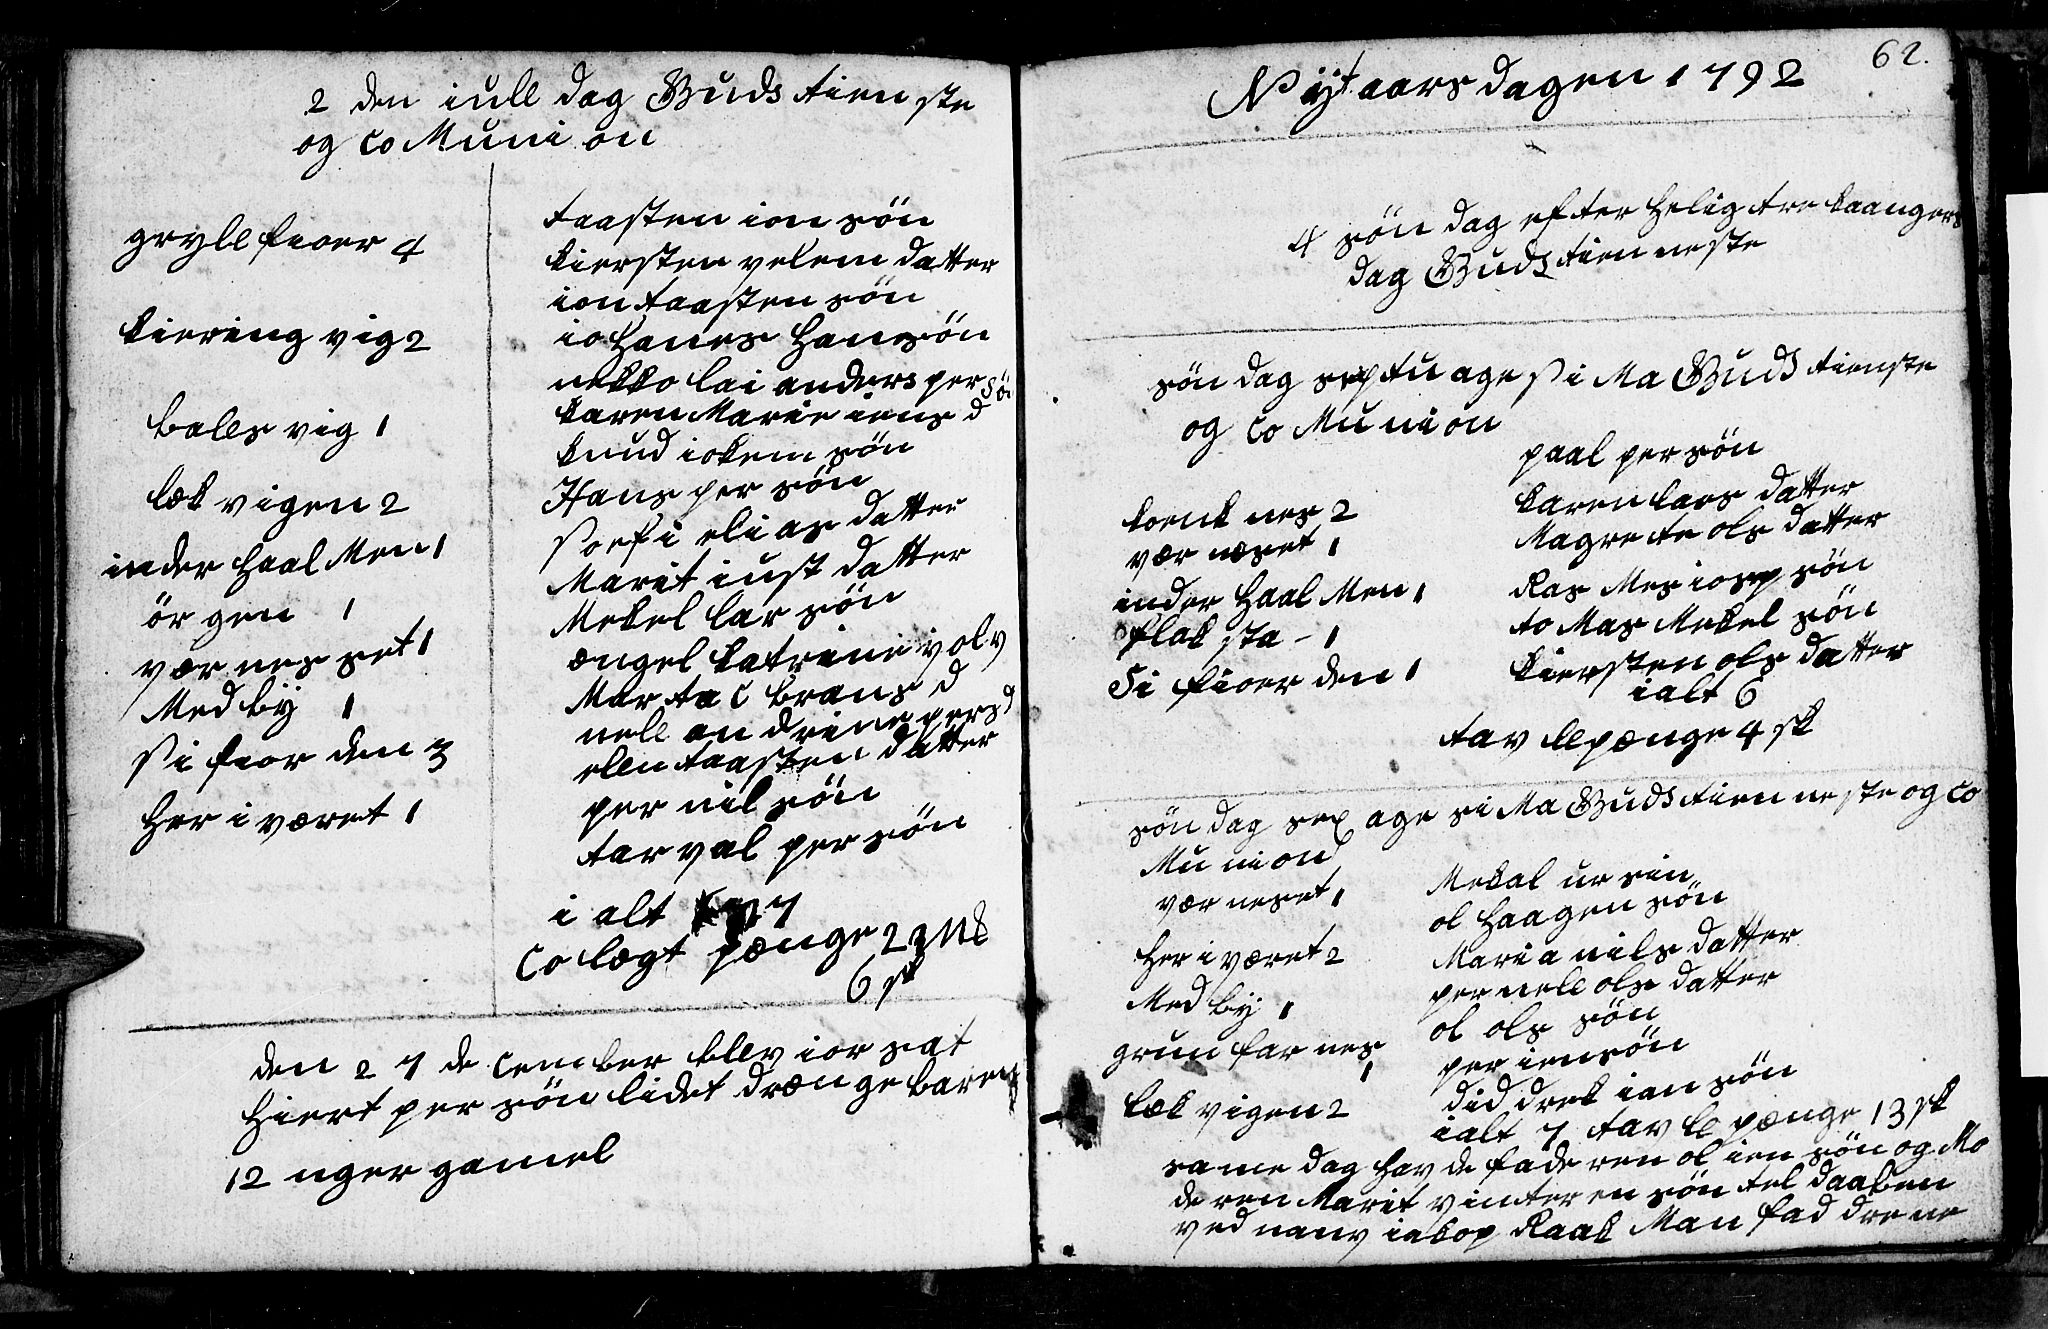 2 den iull dag Guds tien ste
og co Muni on
gryllefioer 4
kiering vig 2
bals vig 1
læk vigen 2
inder haal Men 1
ör gen 1
vær nes set 1
Med bÿ 1
si fior den 3
her i været 1
taasten ion søn
kiersten velem datter
ion taasten søn
io hanes hansøn
nekko lai anders per sö
karen Marie iens d
knud iokem søn
Hans per søn
soefi elias datter
Marit iust datter
Mekel lar søn
ængel katrine volv
Marta C brans d
nell an drine pers d
elen taasten datter
per nil søn
tar val per søn
i alt 17
Co legt pænge 2 Mk
6 sk
den 27 de cember blev ior sat
hiert per søn lidet drænge baren
12 uger gamel
62.
Nÿt aars dagen 1792
4 søn dag efter helig tre kaanger
dag Guds tien neste
søn dag sep tu age si Ma Guds tienste
og co Mu ni on
konk nes 2
vær næset 1
inder haal Men 1
flak sta - 1
Si fioer den 1
paal per søn
karen lars datter
Magre te ols datter
Ras Mes iosep søn
to Mas Mekel søn
kiersten ols datter
ialt 6
tav lepænge 4 sk
søn dag sex age si Ma Guds tien neste og co
Mu ni on
vær neset 1
her i været 2
Med bÿ 1
grun far nes
1
læk vigen 2
Mekal ur sin
ol haagen søn
Maria nils datter
per nell ols datter
ol ols søn
per iensøn
did drek ian søn
ialt 7 tav le pænge 13 sk
same dag hav de fade ren ol ien søn og Mo
de ren Marit vinter en søn tel daaben
ved nanv iakop Raak Man fad dre ne